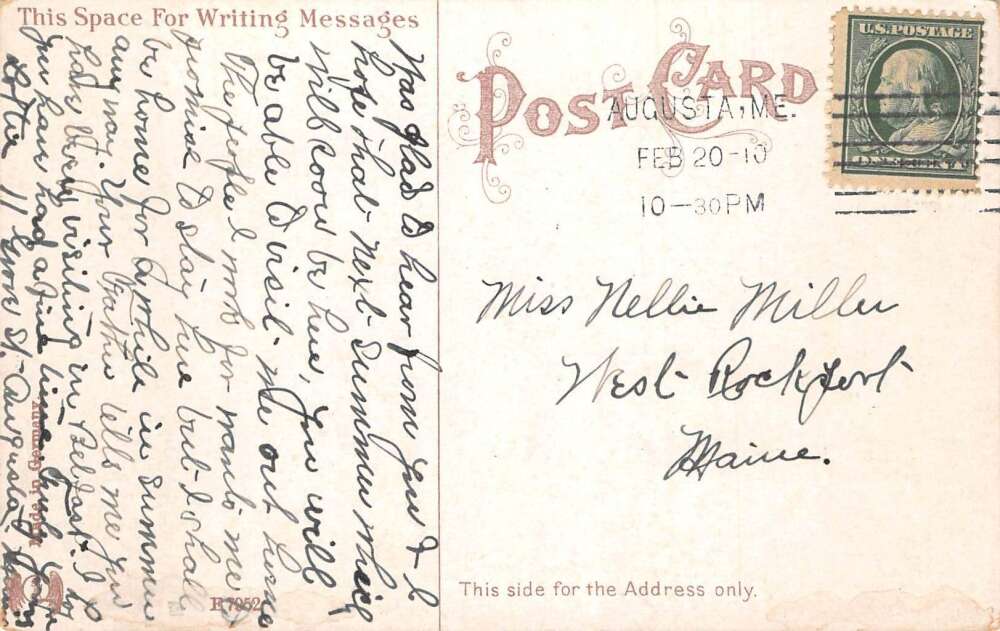 This Space For Writing Messages
POST CARD
U.S. POSTAGE
ONE CENT
AUGUSTA, ME.
FEB 20-10
10-30PM
Was glad to hear from you & I
hope that next summer which
will soon be here, you will
be able to visit me out home
The people I work for wants me to
promise to stay here but I shall
be home for awhile in summer
any way. Your Mother tells me you
have been visiting in Belfast. I
you have had a fine time
Lottie 11 Grove St. Augusta
Miss Nellie Miller
West Rockport
Maine.
Made in Germany.
E7952
This side for the Address only.